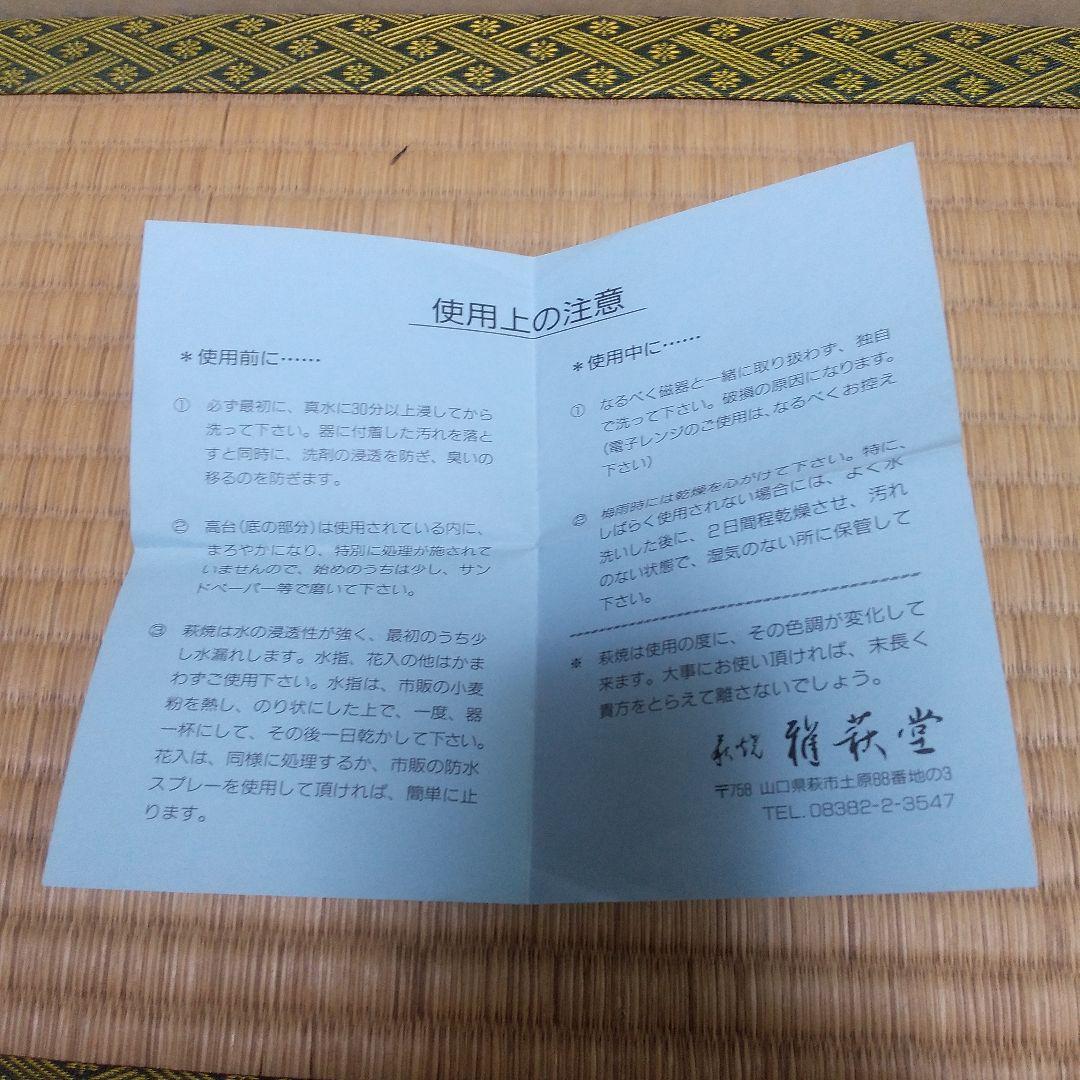 使用上の注意
＊使用前に……
① 必ず最初に、真水に30分以上浸してから
洗って下さい。器に付着した汚れを落と
すと同時に、洗剤の浸透を防ぎ、臭いの
移るのを防ぎます。
② 高台(底の部分)は使用されている内に、
まろやかになり、特別に処理が施されて
いませんので、始めのうちは少し、サン
ドペーパー等で磨いて下さい。
③ 萩焼は水の浸透性が強く、最初のうち少
し水漏れします。水指、花入の他はかま
わずご使用下さい。水指は、市販の小麦
粉を熱し、のり状にした上で、一度、器
一杯にして、その後一日乾かして下さい。
花入は、同様に処理するか、市販の防水
スプレーを使用して頂ければ、簡単に止
ります。
＊使用中に……
① なるべく磁器と一緒に取り扱わず、独自
で洗って下さい。破損の原因になります。
(電子レンジのご使用は、なるべくお控え
下さい)
② 梅雨時には乾燥を心がけて下さい。特に、
しばらく使用されない場合には、よく水
洗いした後に、2日間程乾燥させ、汚れ
のない状態で、湿気のない所に保管して
下さい。
※ 萩焼は使用の度に、その色調が変化して
来ます。大事にお使い頂ければ、末長く
貴方をとらえて離さないでしょう。
萩焼 雅萩堂
〒758 山口県萩市土原88番地の3
TEL.08382-2-3547